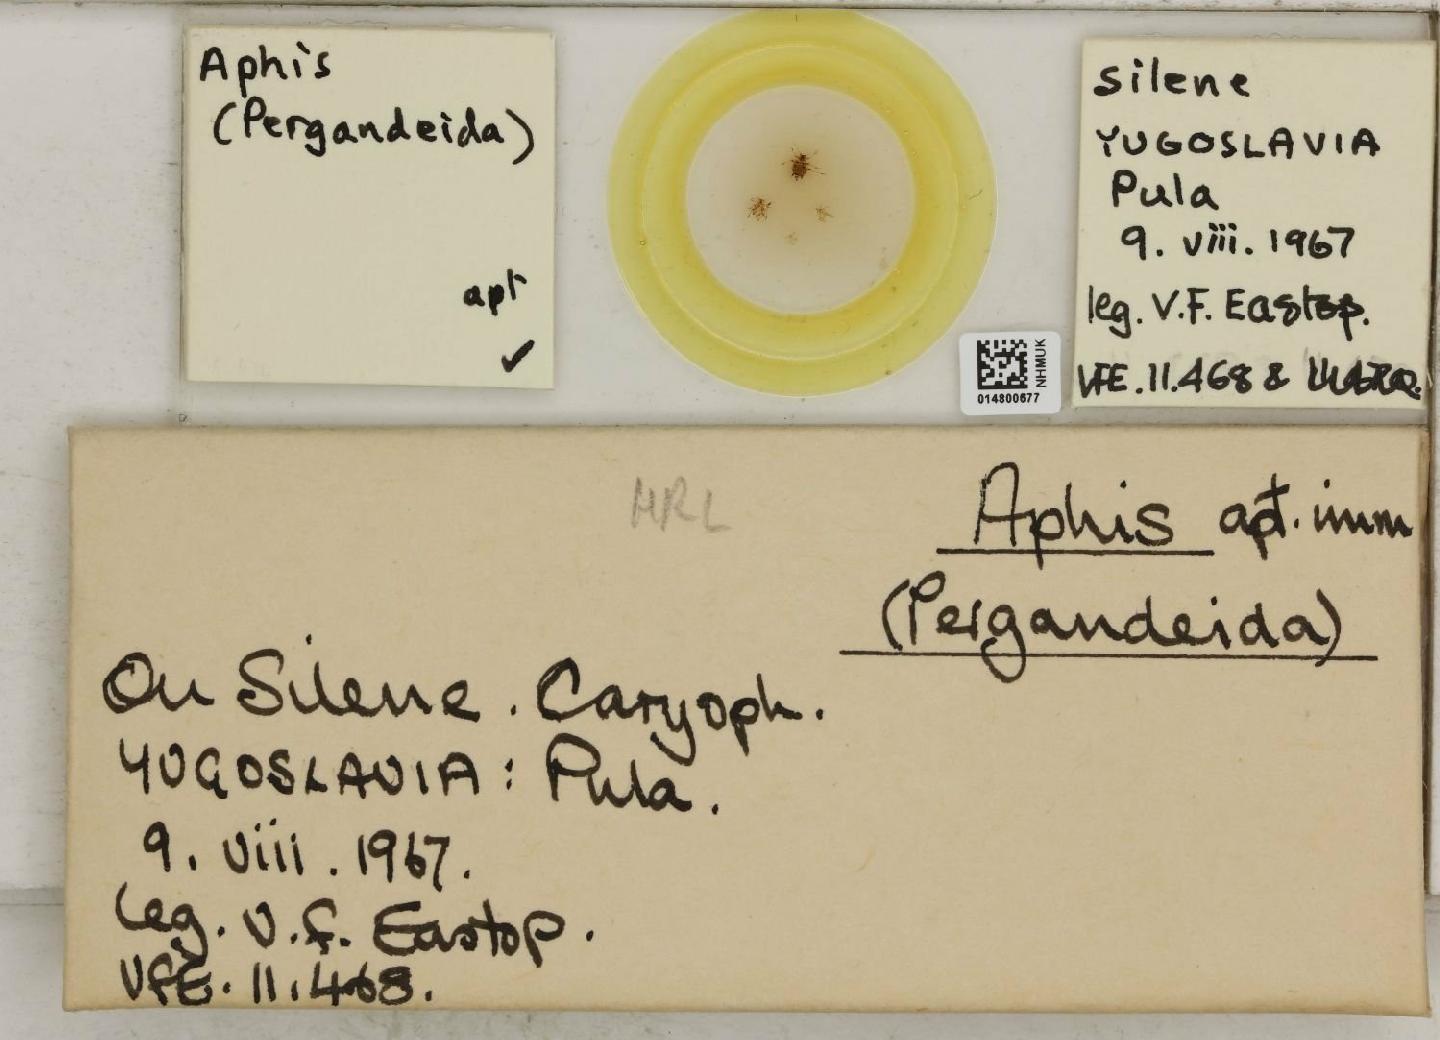 Aphis
(Pergandeida)
apt
✓
NHMUK
014800677
Silene
YUGOSLAVIA
Pula
9. viii. 1967
leg. V.F. Eastop.
VFE. 11.468 &
HRL
Aphis apt. imm
(Pergandeida)
On Silene. Caryoph.
YUGOSLAVIA: Pula.
9. viii. 1967.
Leg. V.F. Eastop.
VFE. 11.468.